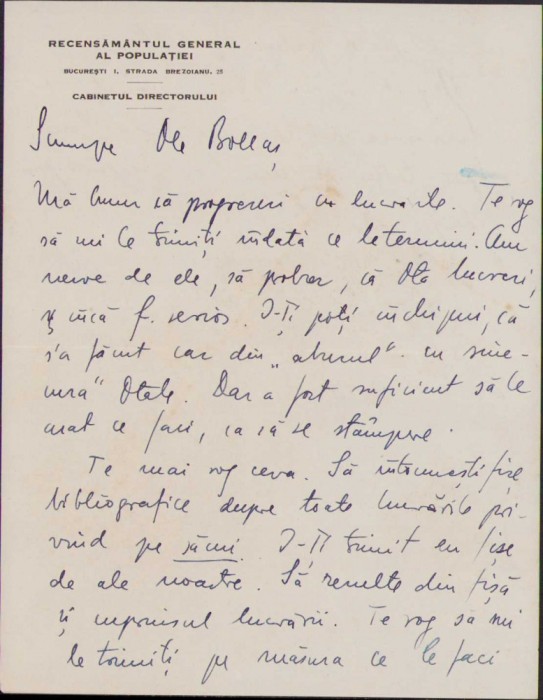 RECENSĂMÂNTUL GENERAL
AL POPULAȚIEI
BUCUREȘTI I, STRADA BREZOIANU, 25
CABINETUL DIRECTORULUI
Scumpe Ole
Mă bucur să progresezi cu lucrarile. Te rog
să mi le trimiți îndată ce le termini. Am
nevoe de ele, să probez, că Ota lucrezi,
și încă f. serios. I-ți poți închipui, că
s'a făcut caz din „abuzul" cu sine-
cura" Otale. Dar a fost suficient să le
arat ce faci, ca să se stâmpere.
Te mai rog ceva. Să întocmești fișe
bibliografice despre toate lucrările pri-
vind pe sămi. I-ți trimit eu fișe
de ale noastre. Să rezulte din fișă
și cuprinsul lucrării. Te rog să mi
le trimiți pe măsura ce le faci